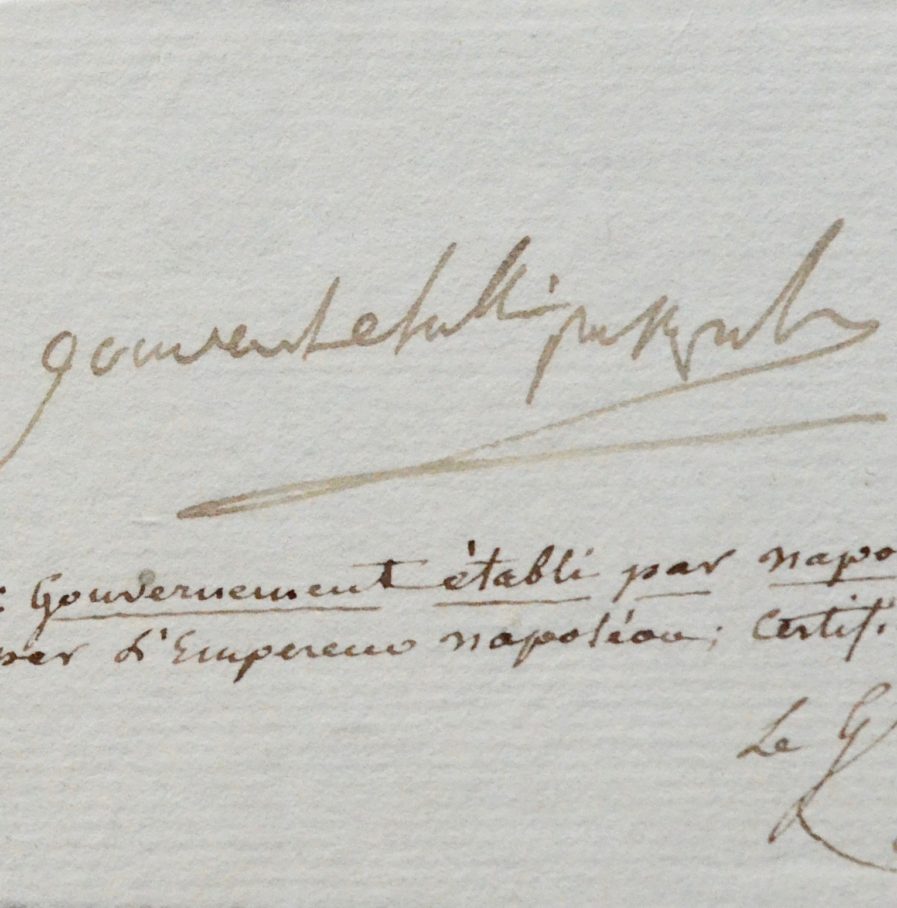 gouvent etabli par
: Gouvernement établi par napo
per l'Empereur napoléon; Certifi
Le G